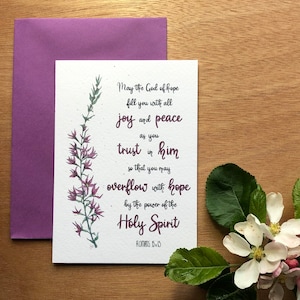 May the God of hope
fill you with all
joy and peace
as you
trust in him
so that you may
overflow with hope
by the power of the
Holy Spirit
ROMANS 15:13